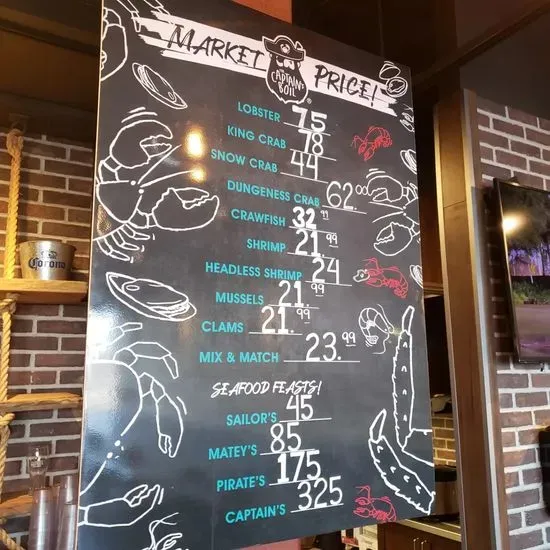 MARKET PRICE!
THE CAPTAIN'S
BOIL
®
LOBSTER 75
KING CRAB 78
SNOW CRAB 44
DUNGENESS CRAB 62.00
CRAWFISH 32.99
SHRIMP 21.99
HEADLESS SHRIMP 24
MUSSELS 21.99
CLAMS 21.99
MIX & MATCH 23.99
SEAFOOD FEASTS!
SAILOR'S 45
MATEY'S 85
PIRATE'S 175
CAPTAIN'S 325
Corona